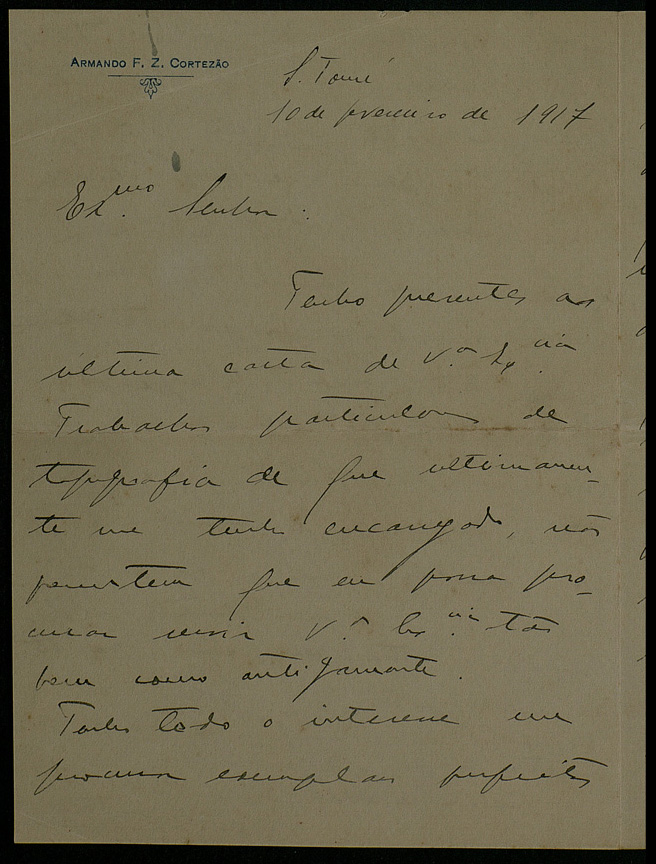 ARMANDO F. Z. CORTEZÃO
S. Tomé
10 de fevereiro de 1917
Ex.mo Senhor :
Tenho presentes as
última carta de V.a Ex.cia
Trabalhos particulares de
topografia de que ultimamen-
te me tenho encarregado, não
permitem que eu possa pro-
curar servir V.a Ex.cia tão
bem como antigamente.
Tenho todo o interesse em
procurar exemplares perfeitos